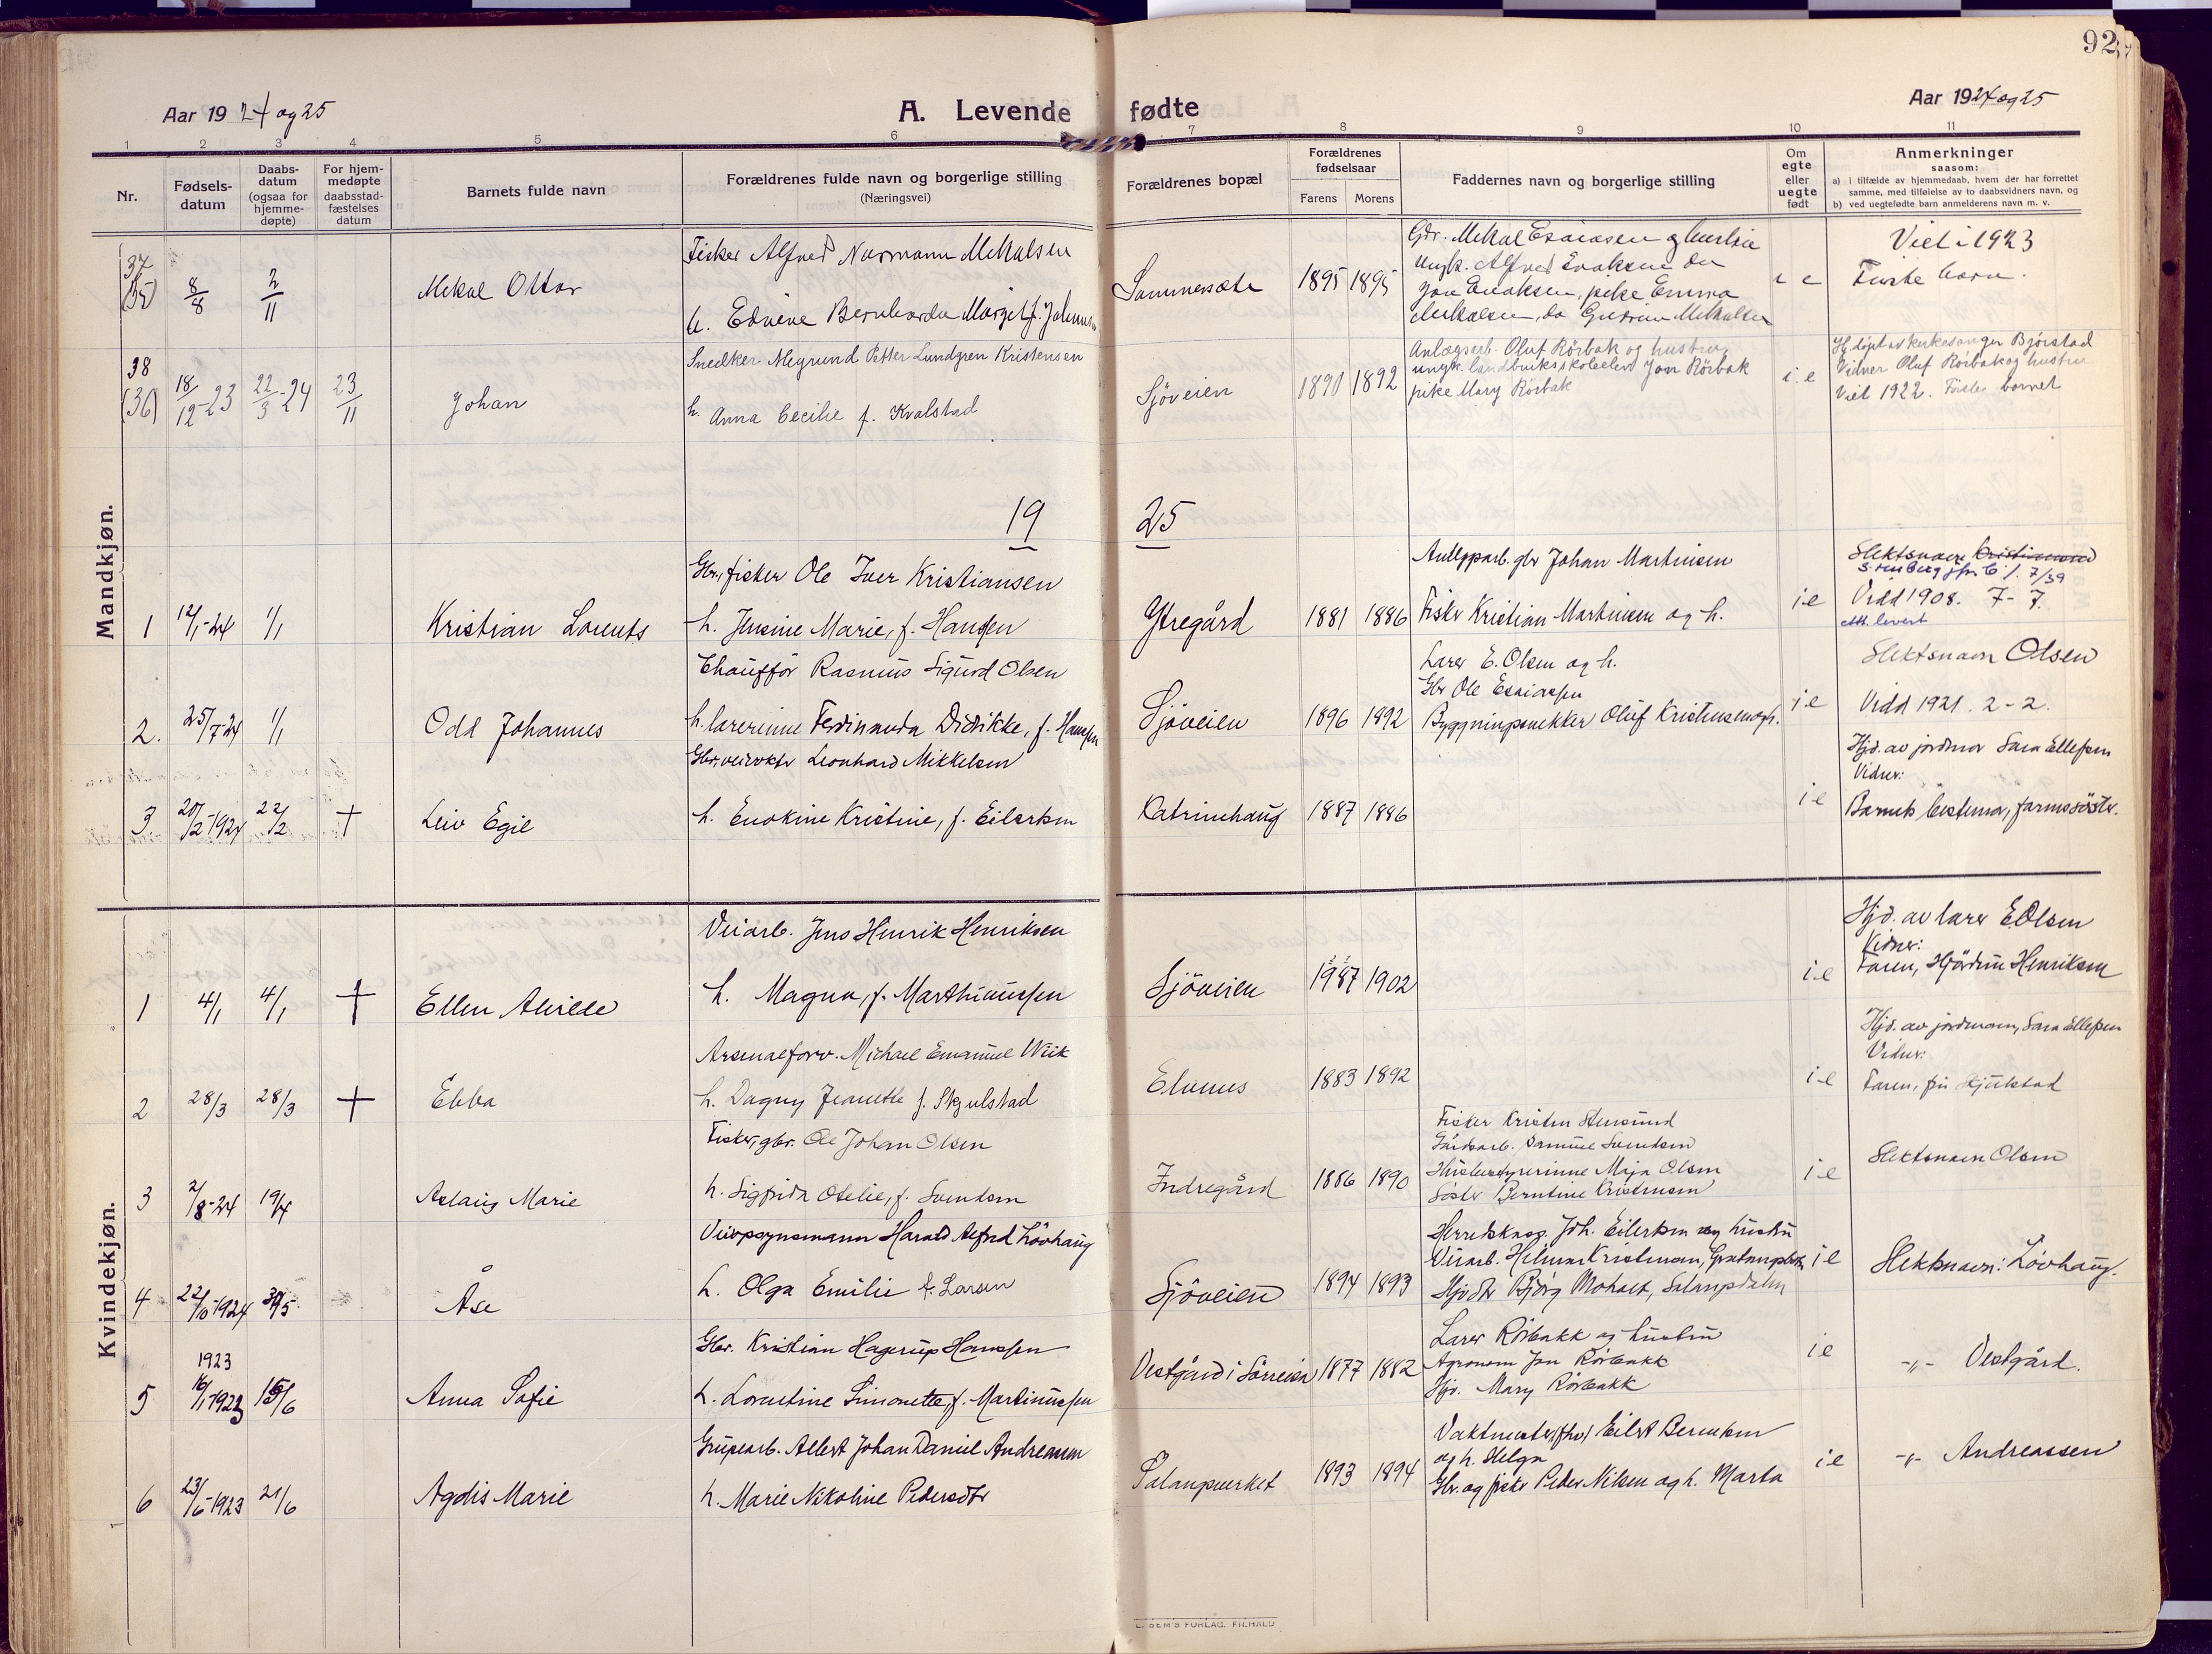 92
Aar 1924 og 25
A. Levende fødte
Aar 1924 og 25
1 2 3 4 5 6 7 8 9 10 11
Nr.
Fødsels-datum
Daabs-datum (ogsaa for hjemme-døpte)
For hjem-medøpte daabsstad-fæstelses datum
Barnets fulde navn
Forældrenes fulde navn og borgerlige stilling
(Næringsvei)
Forældrenes bopæl
Forældrenes fødselsaar
Farens Morens
Faddernes navn og borgerlige stilling
Om egte eller uegte født
Anmerkninger
saasom:
a) i tilfælde av hjemmedaab, hvem der har forrettet samme, med tilføielse av to daabsvidners navn, og
b) ved uegtefødte barn anmelderens navn m. v.
Mandkjøn.
37
(35) 8/8 2/11 Mekal Ottar
Fisker Alfred Normann Mekalsen
h. Edvine Bernharda Margit f.
1895 1895
Viet i 1923
Første barn.
38
(36) 18/12-23 22/3-24 23/11 Johan
Snedker Petter Lundgren Kristensen
h. Anna Cecilie f. Kvalstad
Sjøveien 1890 1892
Anlægsarb. Oluf Rörbak og hustru,
ungk. landbruksskoleelev Jon Rörbak
pike Mary Rörbak
i.e
Hj.døpt av kirkesanger Bjørstad
Vidner Oluf Rörbak og hustru
Viet 1922. Første barnet
19 25
1 12/1-24 1/1 Kristian Lorents
Gbr., fisker Ole Iver Kristiansen
h. Jensine Marie, f. Hansen
Ytregård 1881 1886
gbr Johan Martinsen
Fisker Kristian Martinsen og h.
i-e
Slektsnavn Kristiansen
7/39
Vidd 1908. 7-7.
Att. levert
2. 25/7-24 1/1 Odd Johannes
Chauffør Rasmus Sigurd Olsen
h. lærerinne Ferdinanda Didrikke, f. Hansen
Sjöveien 1896 1892
Lærer E. Olsen og h.
Gbr Ole Esaiassen
Byggningssnekker Oluf Kristensen og h.
i-e
Slektsnavn Olsen
Vidd 1921. 2-2.
3. 20/2-1924 22/2 + Leiv Egil
Gbr., veivokter Leonhard Mikkelsen
h. Enokine Kristine, f. Eilertsen
Katrinehaug 1887 1886
i e
Hjd. av jordmor Sara Ellefsen
Vidner:
Barnets bestemor, farmosøster.
Kvindekjøn.
1 4/1 4/1 + Ellen Alvilde
Veiarb. Jens Henrik Henriksen
h. Magna, f. Marthinussen
Sjöveien 1987 1902
i e
Hjd. av lærer E. Olsen
Vidner:
Faren, Hjördis Henriksen
2 28/3 28/3 + Ebba
Arsenalforv. Michael Emanuel Wiik
h. Dagny Jeanette f. Skjulstad
Elvenes 1883 1892
i-e
Hjd. av jordmoren, Sara Ellefsen
Vidner:
Faren, fru Skjulstad
3 2/8-24 19/4 Aslaug Marie
Fisker, gbr. Ole Johan Olsen
h. Sigfrida Otelie, f. Svendsen
Indregård 1886 1890
Fisker Kristen Stensund
Gårdsarb. Samuel Svendsen
Husbestyrerinne Maja Olsen
Søster Berntine Kristensen
i e
Slektsnavn Olsen
4 22/10-1924 Åse
Veiopsynsmann Harald Alfred Lövhaug
h. Olga Emilie f. Larsen
Sjöveien 1894 1893
Herredskass. Joh. Eilertsen og hustru
Veiarb. Helmer Kristensen,
Bjørg Moholt, Salangsdalen
i e
Slektsnavn: Lövhaug.
5 1923
16/1-1923 15/6 Anna Sofie
Gbr. Kristian Hagerup Hanssen
h. Lorentine Simonette, f. Martinussen
Vestgård i Sørreisa 1877 1882
Lærer Rörbakk og hustru
Agronom Jon Rörbakk
Hjd. Mary Rörbakk
i e
-"- Vestgård.
6 23/6-1923 21/6 Agdis Marie
Grubearb. Albert Johan Daniel Andreassen
h. Marie Nikoline Pedersdtr
Salangsverket 1893 1894
Vaktmester (fhv) Eilert Berntsen
og h. Helga
Gbr. og fisker Peder Nilsen og h. Marta
i e
-"- Andreassen
SEM'S FORLAG, FR.HALD